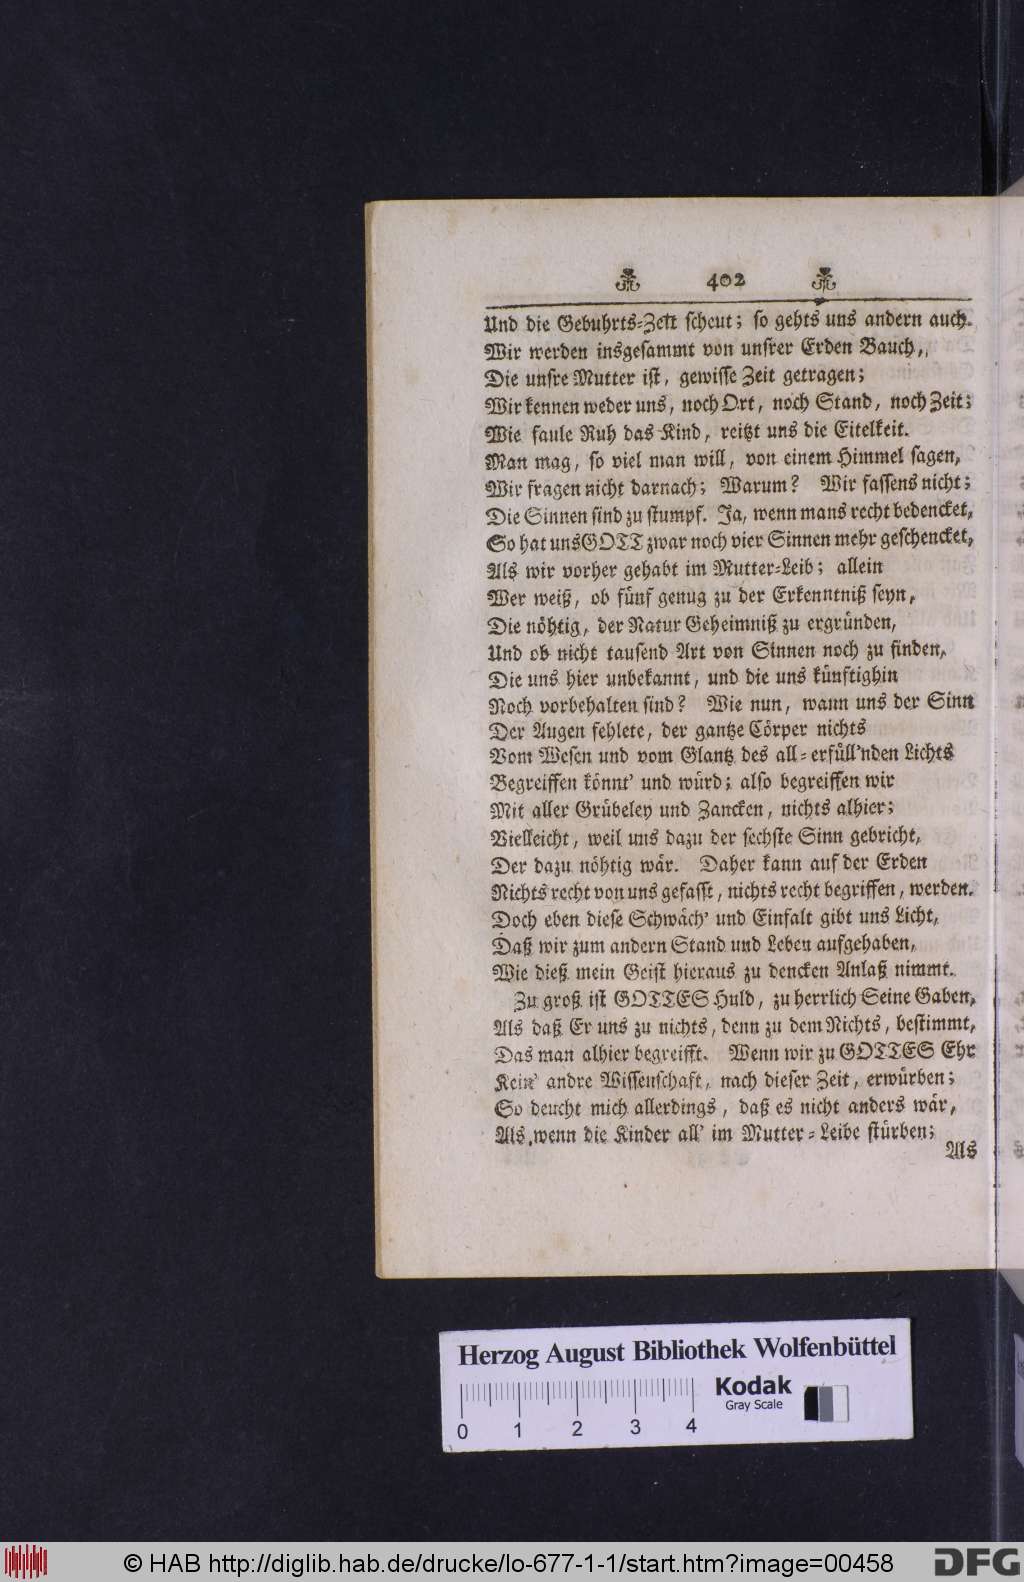 402
Und die Gebuhrts-Zeit scheut; so gehts uns andern auch.
Wir werden insgesammt von unsrer Erden Bauch,
Die unsre Mutter ist, gewisse Zeit getragen;
Wir kennen weder uns, noch Ort, noch Stand, noch Zeit;
Wie faule Ruh das Kind, reitzt uns die Eitelkeit.
Man mag, so viel man will, von einem Himmel sagen,
Wir fragen nicht darnach; Warum? Wir fassens nicht;
Die Sinnen sind zu stumpf. Ja, wenn mans recht bedencket,
So hat uns GOTT zwar noch vier Sinnen mehr geschencket,
Als wir vorher gehabt im Mutter-Leib; allein
Wer weiß, ob fünf genug zu der Erkenntniß seyn,
Die nöhtig, der Natur Geheimniß zu ergründen,
Und ob nicht tausend Art von Sinnen noch zu finden,
Die uns hier unbekannt, und die uns künftighin
Noch vorbehalten sind? Wie nun, wann uns der Sinn
Der Augen fehlete, der gantze Cörper nichts
Vom Wesen und vom Glantz des all-erfüll'nden Lichts
Begreiffen könnt' und würd; also begreiffen wir
Mit aller Grübeley und Zancken, nichts alhier;
Vielleicht, weil uns dazu der sechste Sinn gebricht,
Der dazu nöhtig wär. Daher kann auf der Erden
Nichts recht von uns gefasst, nichts recht begriffen, werden.
Doch eben diese Schwäch' und Einfalt gibt uns Licht,
Daß wir zum andern Stand und Leben aufgehaben,
Wie dieß mein Geist hieraus zu dencken Anlaß nimmt.
Zu groß ist GOTTES Huld, zu herrlich Seine Gaben,
Als daß Er uns zu nichts, denn zu dem Nichts, bestimmt,
Das man alhier begreifft. Wenn wir zu GOTTES Ehr
Kein' andre Wissenschaft, nach dieser Zeit, erwürben;
So deucht mich allerdings, daß es nicht anders wär,
Als, wenn die Kinder all' im Mutter-Leibe stürben;
Als
Herzog August Bibliothek Wolfenbüttel
Kodak
Gray Scale
0 1 2 3 4
© HAB http://diglib.hab.de/drucke/lo-677-1-1/start.htm?image=00458
DFG